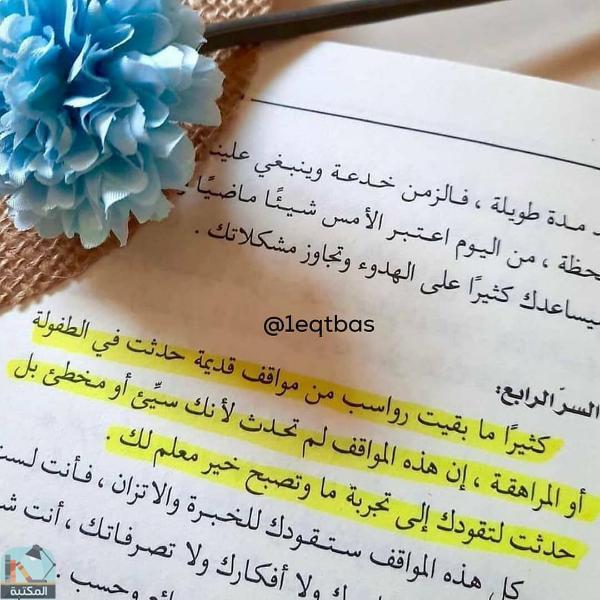 مدة طويلة ، فالزمن خدعة وينبغي علينـ
حظة ، من اليوم اعتبر الأمس شيئًا ماضيًا
يساعدك كثيرًا على الهدوء وتجاوز مشكلاتك .
@1eqtbas
السرّ الرابع:
كثيرًا ما بقيت رواسب من مواقف قديمة حدثت في الطفولة
أو المراهقة ، إن هذه المواقف لم تحدث لأنك سيِّئ أو مخطئ بل
حدثت لتقودك إلى تجربة ما وتصبح خير معلم لك .
كل هذه المواقف ستقودك للخبرة والاتزان ، فأنت لست
ولا أفكارك ولا تصرفاتك ، أنت
وحسب .
المكتبة